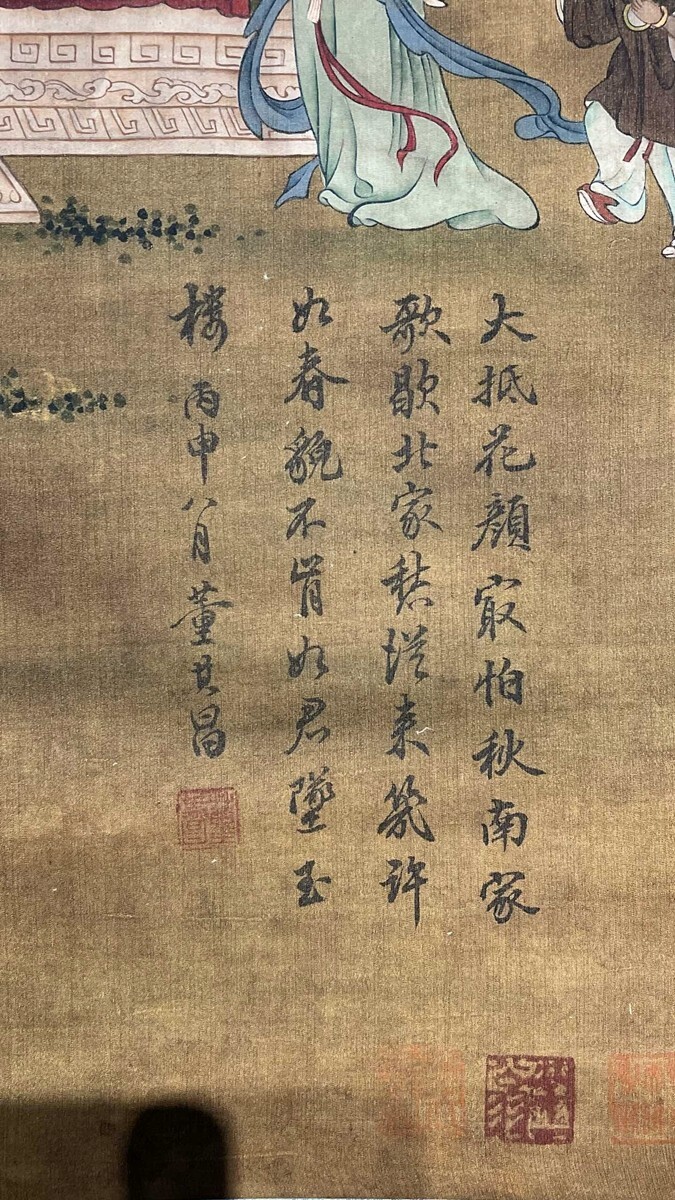 大抵花顔㝡怕秋南家
歌歇北家愁従来幾許
如春貌不肯如君墜玉
樓 丙申八月董其昌